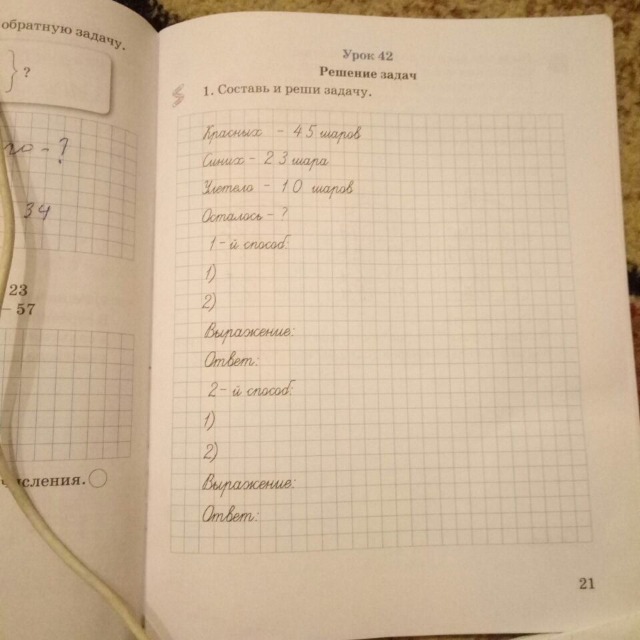 обратную задачу.
} ?
го - ?
34
23
– 57
числения.
Урок 42
Решение задач
1. Составь и реши задачу.
Красных – 45 шаров
Синих – 23 шара
Улетело – 10 шаров
Осталось – ?
1-й способ:
1)
2)
Выражение:
Ответ:
2-й способ:
1)
2)
Выражение:
Ответ:
21